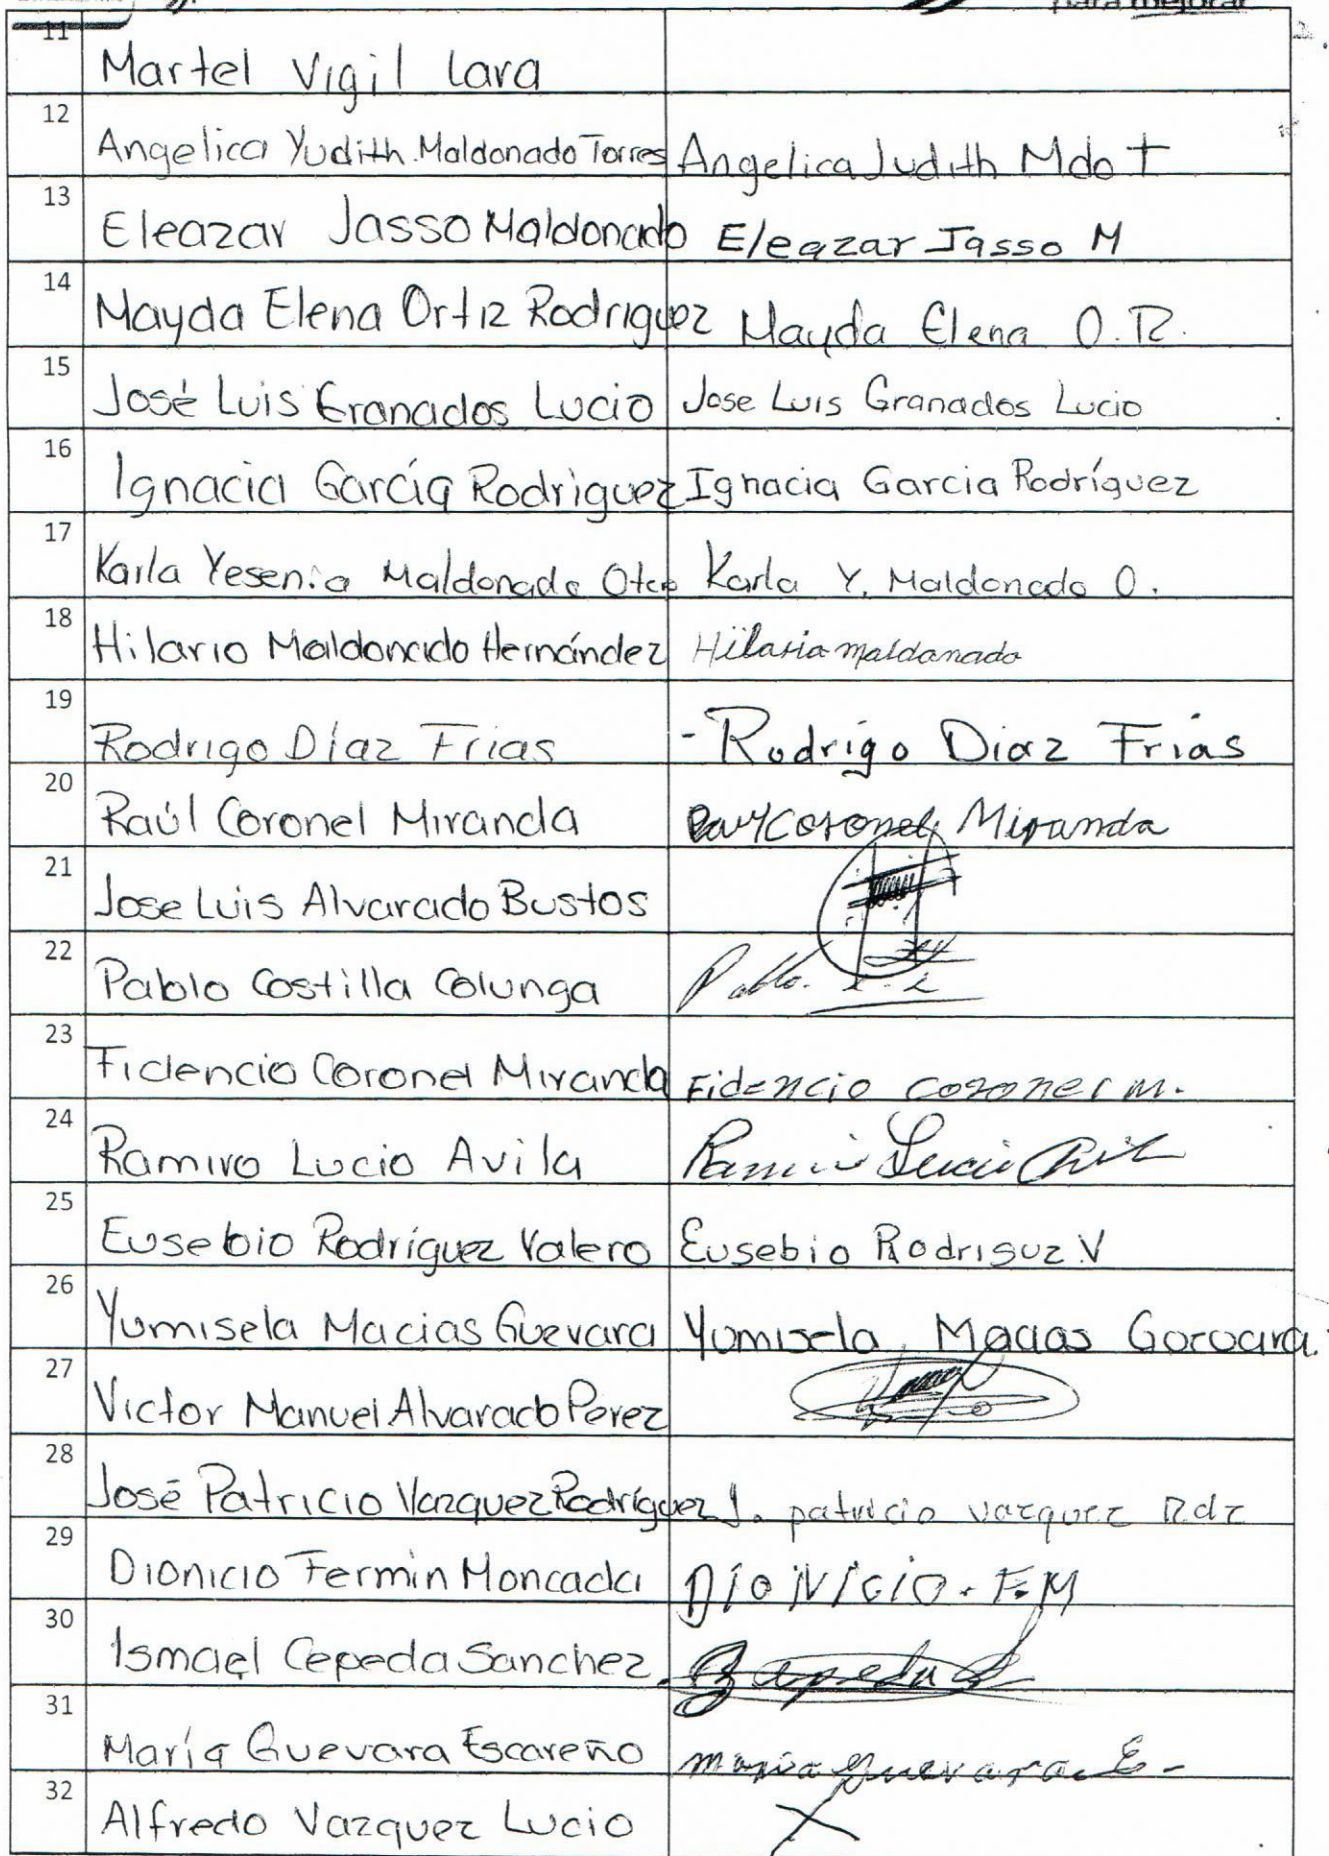 para mejorar
11 Martel Vigil Lara
12 Angelica Yudith Maldonado Torres Angelica Judith Mdo T
13 Eleazar Jasso Maldonado Eleazar Jasso M
14 Mayda Elena Ortiz Rodriguez Mayda Elena O. R.
15 José Luis Granados Lucio Jose Luis Granados Lucio
16 Ignacia García Rodriguez Ignacia Garcia Rodríguez
17 Karla Yesenia Maldonado Karla Y. Maldonado O.
18 Hilario Maldonado Hernández Hilaria maldonado
19 Rodrigo Díaz Frias - Rodrigo Diaz Frias
20 Raúl Coronel Miranda Raul Coronel Miranda
21 Jose Luis Alvarado Bustos
22 Pablo Costilla Colunga Pablo.
23 Fidencio Coronel Miranda Fidencio coronel M.
24 Ramiro Lucio Avila Ramiro Lucio Avila
25 Eusebio Rodríguez Valero Eusebio Rodriguz V
26 Yumisela Macias Guevara Yumisela Macias
27 Victor Manuel Alvarado Perez
28 José Patricio Vazquez Rodríguez J. patricio vazquez Rdz
29 Dionicio Fermin Moncada DioNicio. F.M
30 Ismael Cepeda Sanchez
31 María Guevara Escareño maria guevara. E-
32 Alfredo Vazquez Lucio X